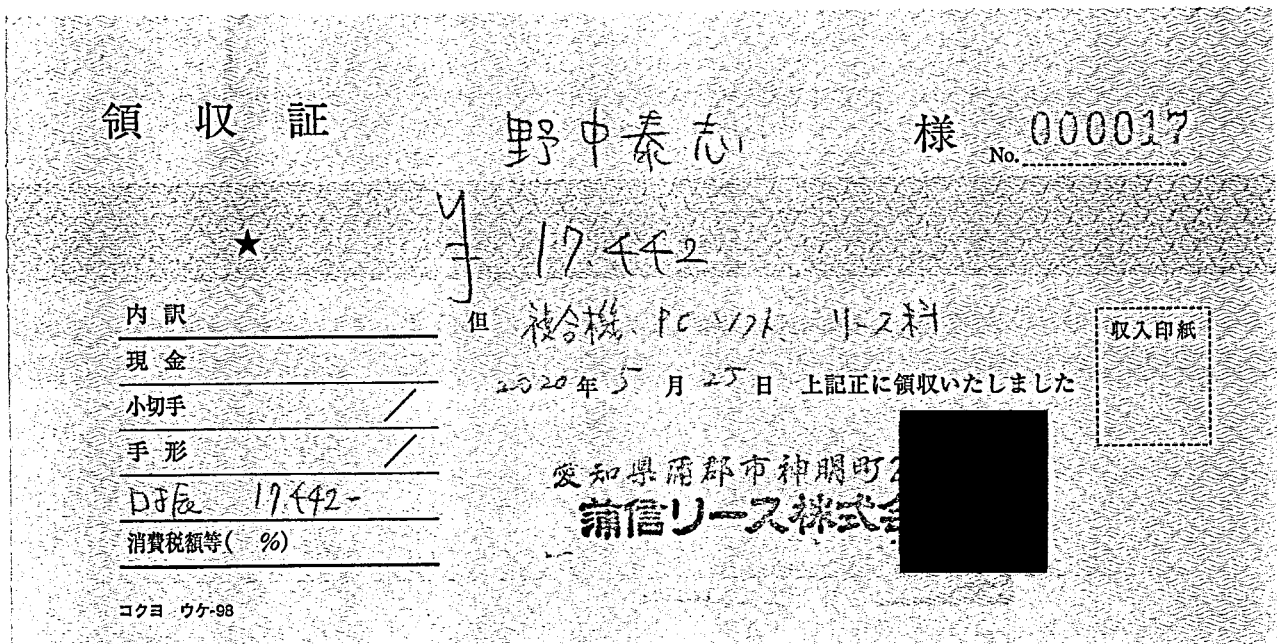 領収証 野中泰志 様 No. 000017
★ ¥ 17.442
内訳
現金
小切手 /
手形 /
口振 17.442-
消費税額等( %)
但 複合機、PCソフト、リース料
2020年5月25日 上記正に領収いたしました
収入印紙
愛知県蒲郡市神明町2
蒲信リース株式会
コクヨ ウケ-98